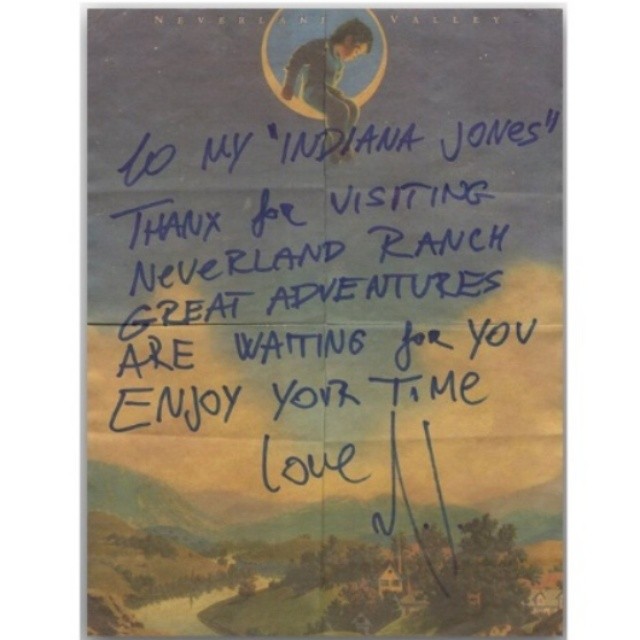 NEVERLAND VALLEY
to MY "INDIANA JONES"
THANX for VISITING
NeveRLAND RANCH
GREAT ADVENTURES
ARE WAITING for YOU
ENJOY YOUR TiMe
love